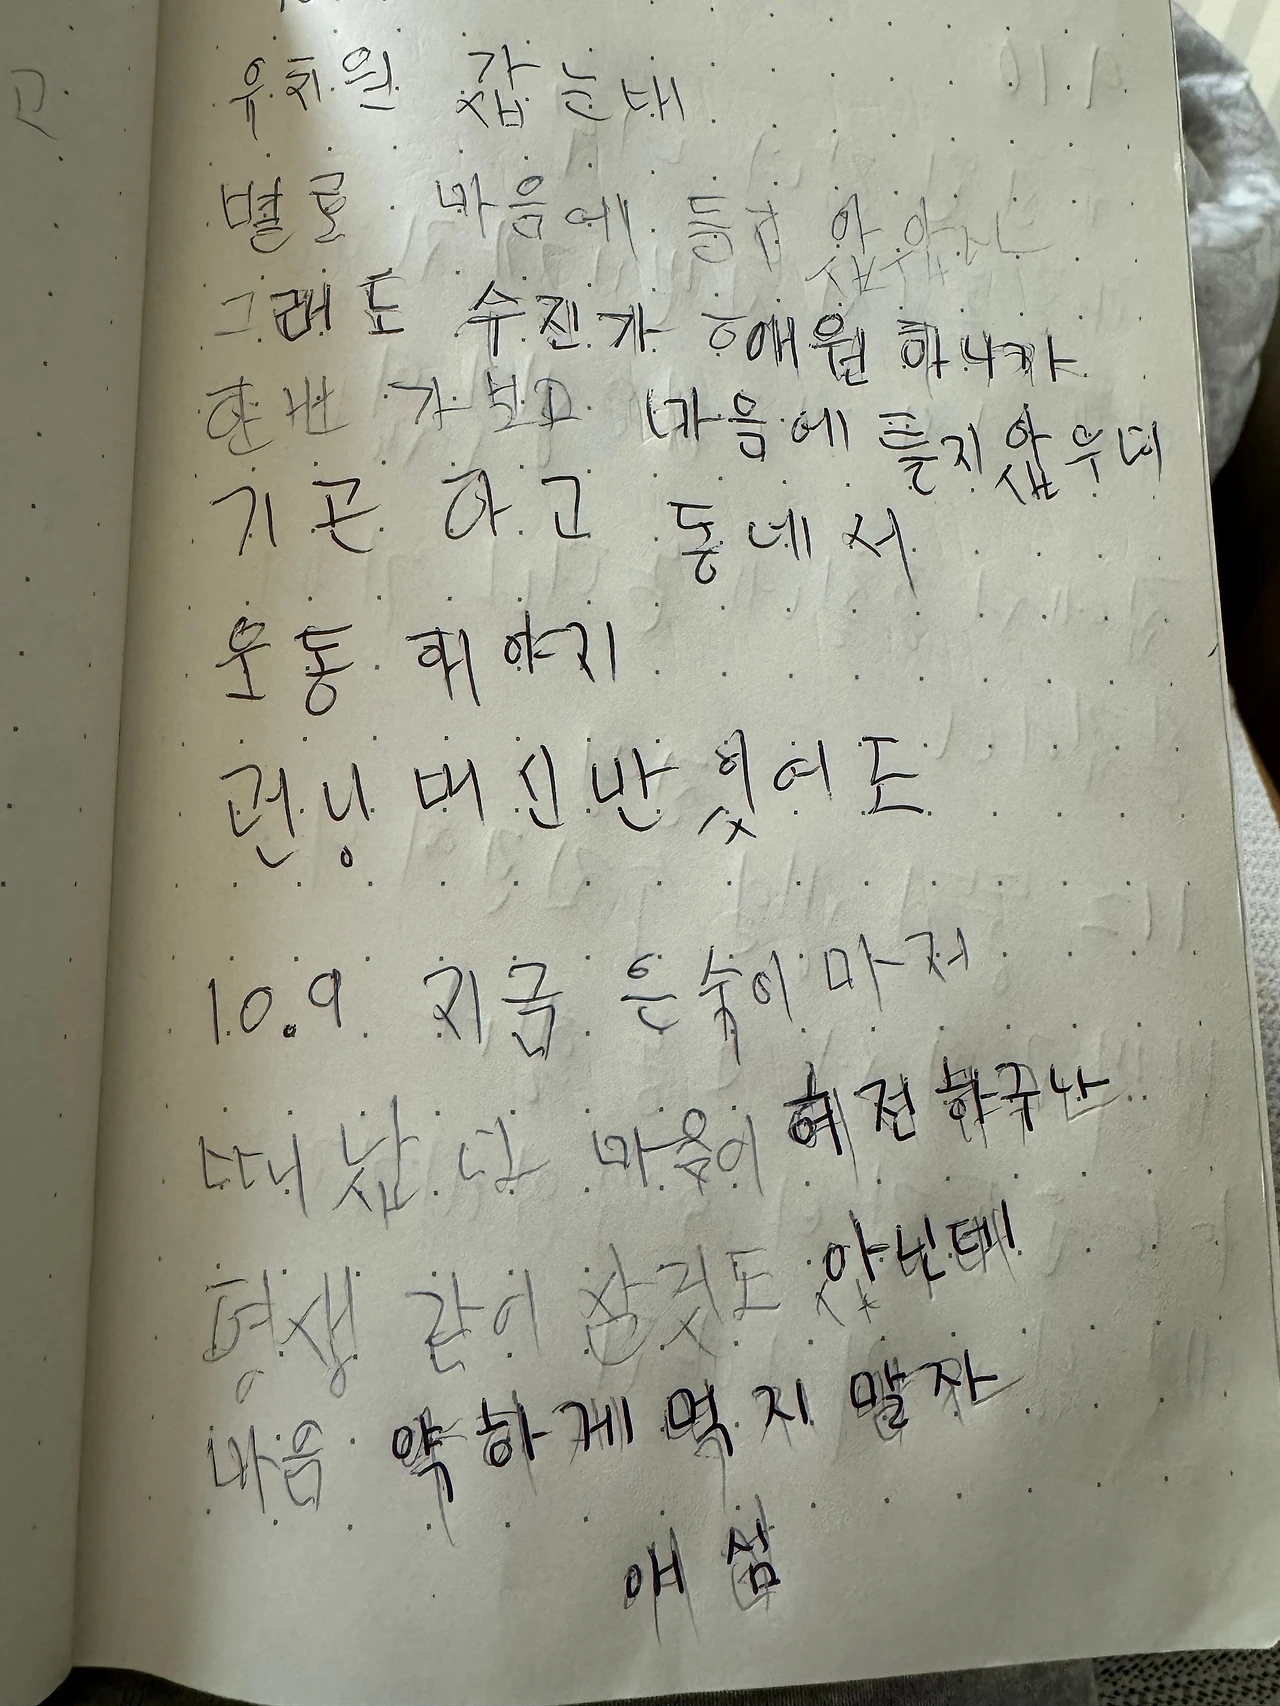 유치원 갔는대
별로 마음에 들지
그래도 수진가 애원 하니까
한번 가보고 마음에 들지
기곤 하고 동네서
운동 해야지
런닝 머신 반
10.9 지금 은숙이 마저
떠나 마음이 허전 하구나
평생 같이 살것도 아닌데
마음 약하게 먹지 말자